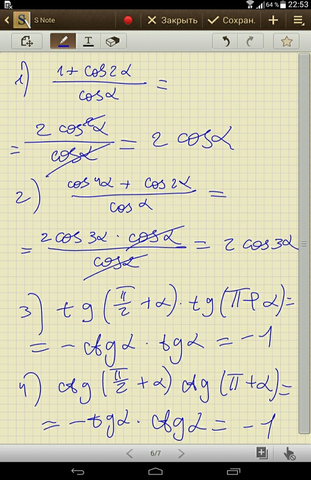 64% 22:53
S Note
Закрыть
Сохран.
1) (1+cos2α)/(cosα) =
= (2 cos²α)/(cosα) = 2 cosα
2) (cos4α + cos2α)/(cosα) =
= (2cos3α · cosα)/(cosα) = 2cos3α
3) tg(π/2 + α) · tg(π+α) =
= -ctgα · tgα = -1
4) ctg(π/2 + α) ctg(π+α) =
= -tgα · ctgα = -1
6/7